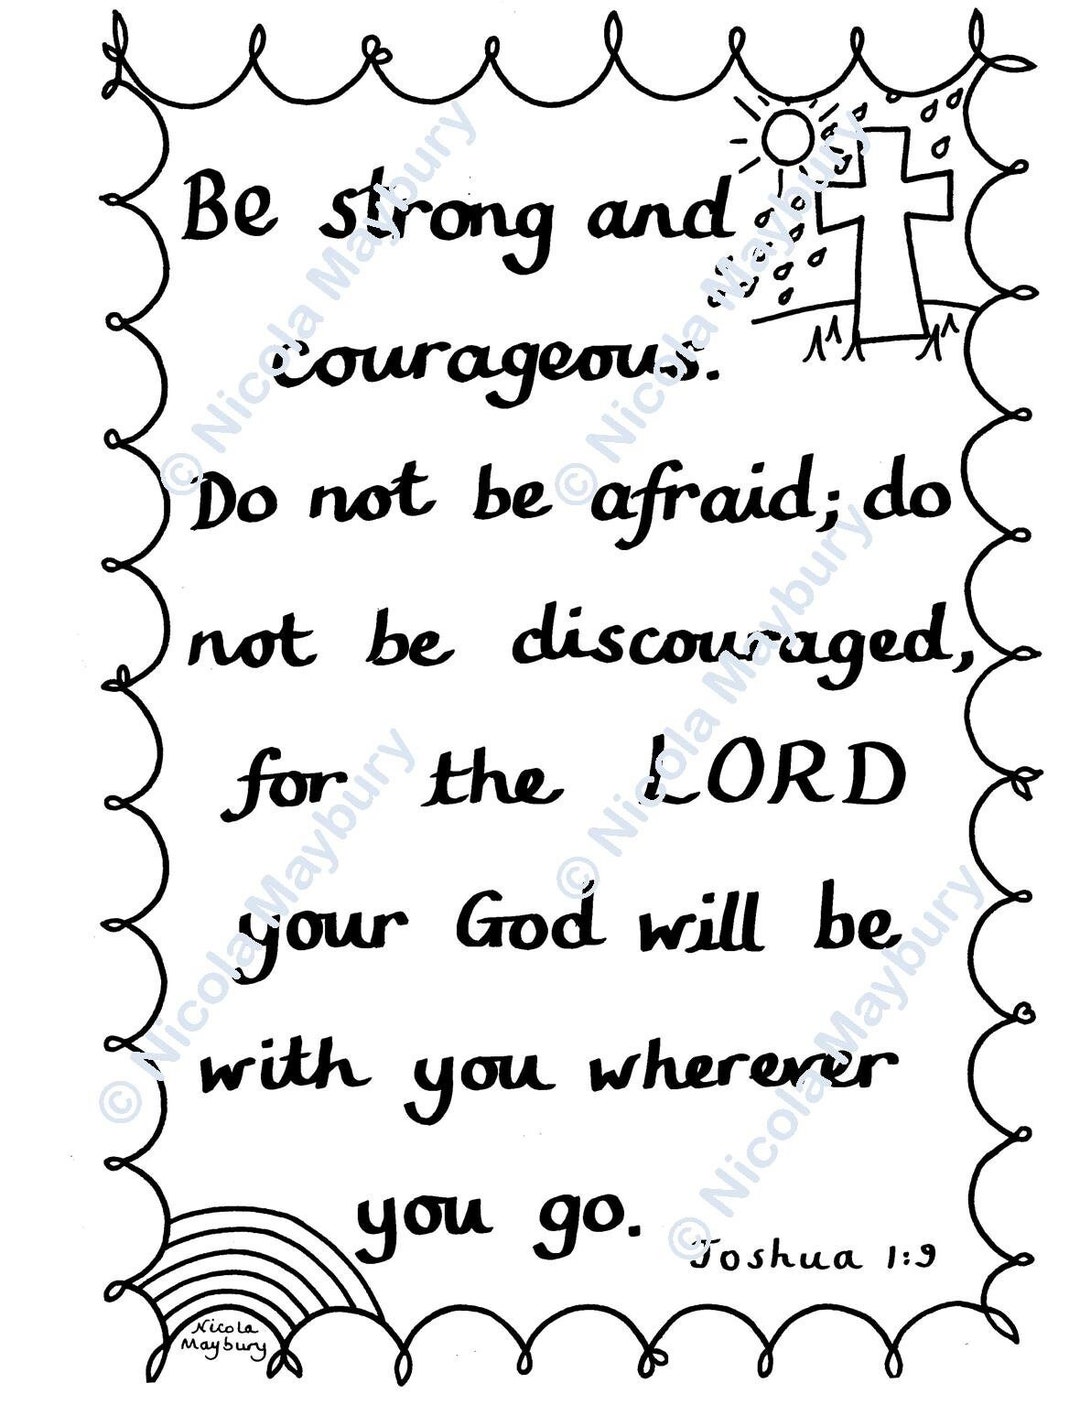 Be strong and
courageous.
Do not be afraid; do
not be discouraged,
for the LORD
your God will be
with you wherever
you go.
Joshua 1:9
Nicola
Maybury
© Nicola Maybury
© Nicola Maybury
© Nicola Maybury
© Nicola Maybury
© Nicola Maybury